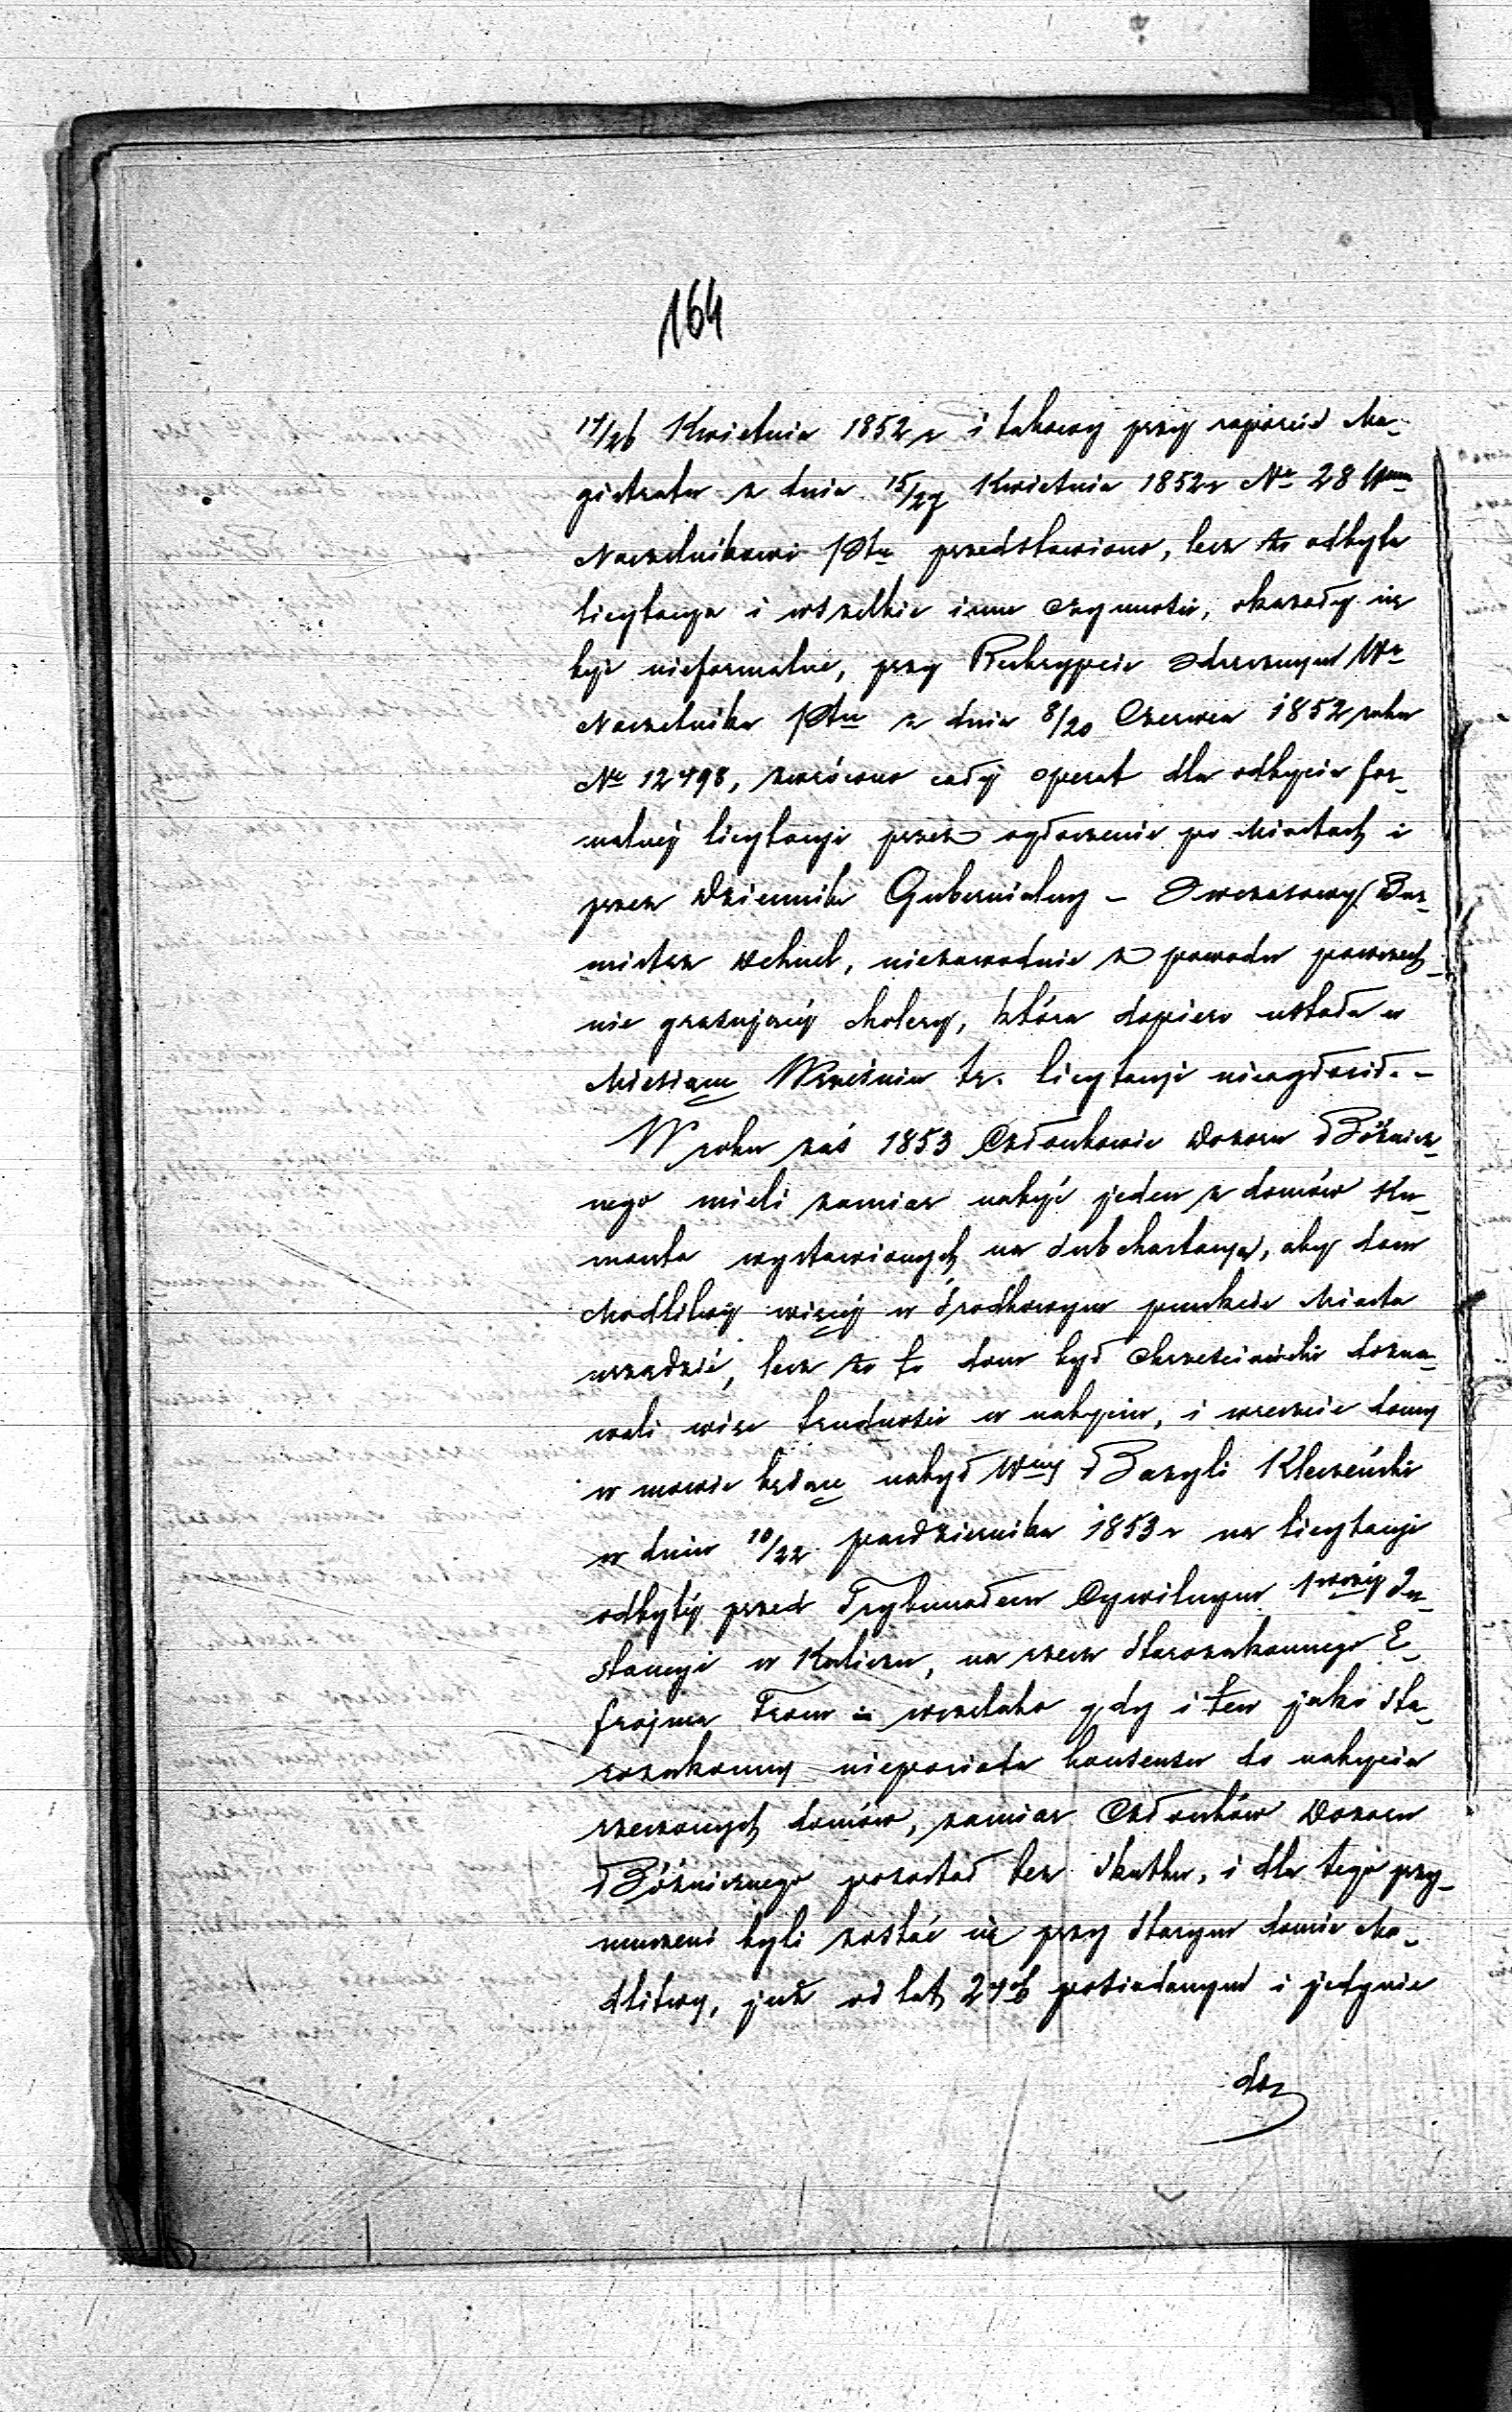 164
14/26 Kwietnia 1852 r i takowy przy raporcie Ma-
gistratu z dnia 15/27 Kwietnia 1852 r No 28 Wmu
Naczelnikowi Ptu przedstawiono, lecz że odbyta
licytacya i wszelkie inne czynności, okazały się
być nieformalne, przy Reskrypcie odręcznym Wo
Naczelnika Ptu z dnia 8/20 Czerwca 1852 roku
No 12498, zwrócono cały operat dla odbycia for-
malnéj licytacyi przez ogłoszenie po Miastach i
przez Dziennik Gubernialny – Owczasowy Bur-
mistrz, niezawodnie z powodu powszech-
nie grasującéj cholery, która dopiero ustała w
Miesiącu Wrześniu tr. licytacyi nieogłosił. –
W roku zaś 1853 Członkowie Dozoru Bóżnicz-
nego mieli zamiar nabyć jeden z domów
wystawionych na subhastacyą, aby dom
Modlitwy więcéj w środkowym punkcie Miasta
urządzić, lecz że to dom był chrześciański dozna-
wali więc trudności w nabyciu, i wreszcie domy
w mowie będące nabył Wny Bazyli Kleczeński
w dniu 10/22 października 1853 r na licytacyi
odbytéj przed Trybunałem Cywilnym 1wszéj In-
stancyi w Kaliszu, na rzecz Starozakonnego E-
frojma From wszelako gdy i ten jako sta-
rozakonny nieposiada konsensu do nabycia
rzeczonych domów, zamiar Członków Dozoru
Bóżnicznego pozostał bez skutku, i dla tego przy-
muszeni byli zostać się przy starym domie Mo-
dlitwy, już od lat 24ch posiadanym i jedynie
do